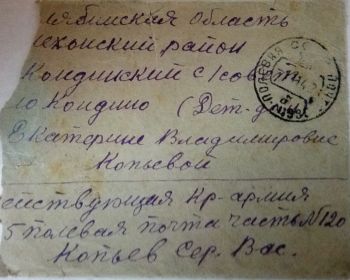 лябинская область
ехонский район
Кондинский с/совет
ло Кондино (Дет-д
Екатерине Владимировне
Копьевой
ействующая Кр-армия
5 полевая почта часть №120
Копьев Сер. Вас.
ПОЛЕВАЯ